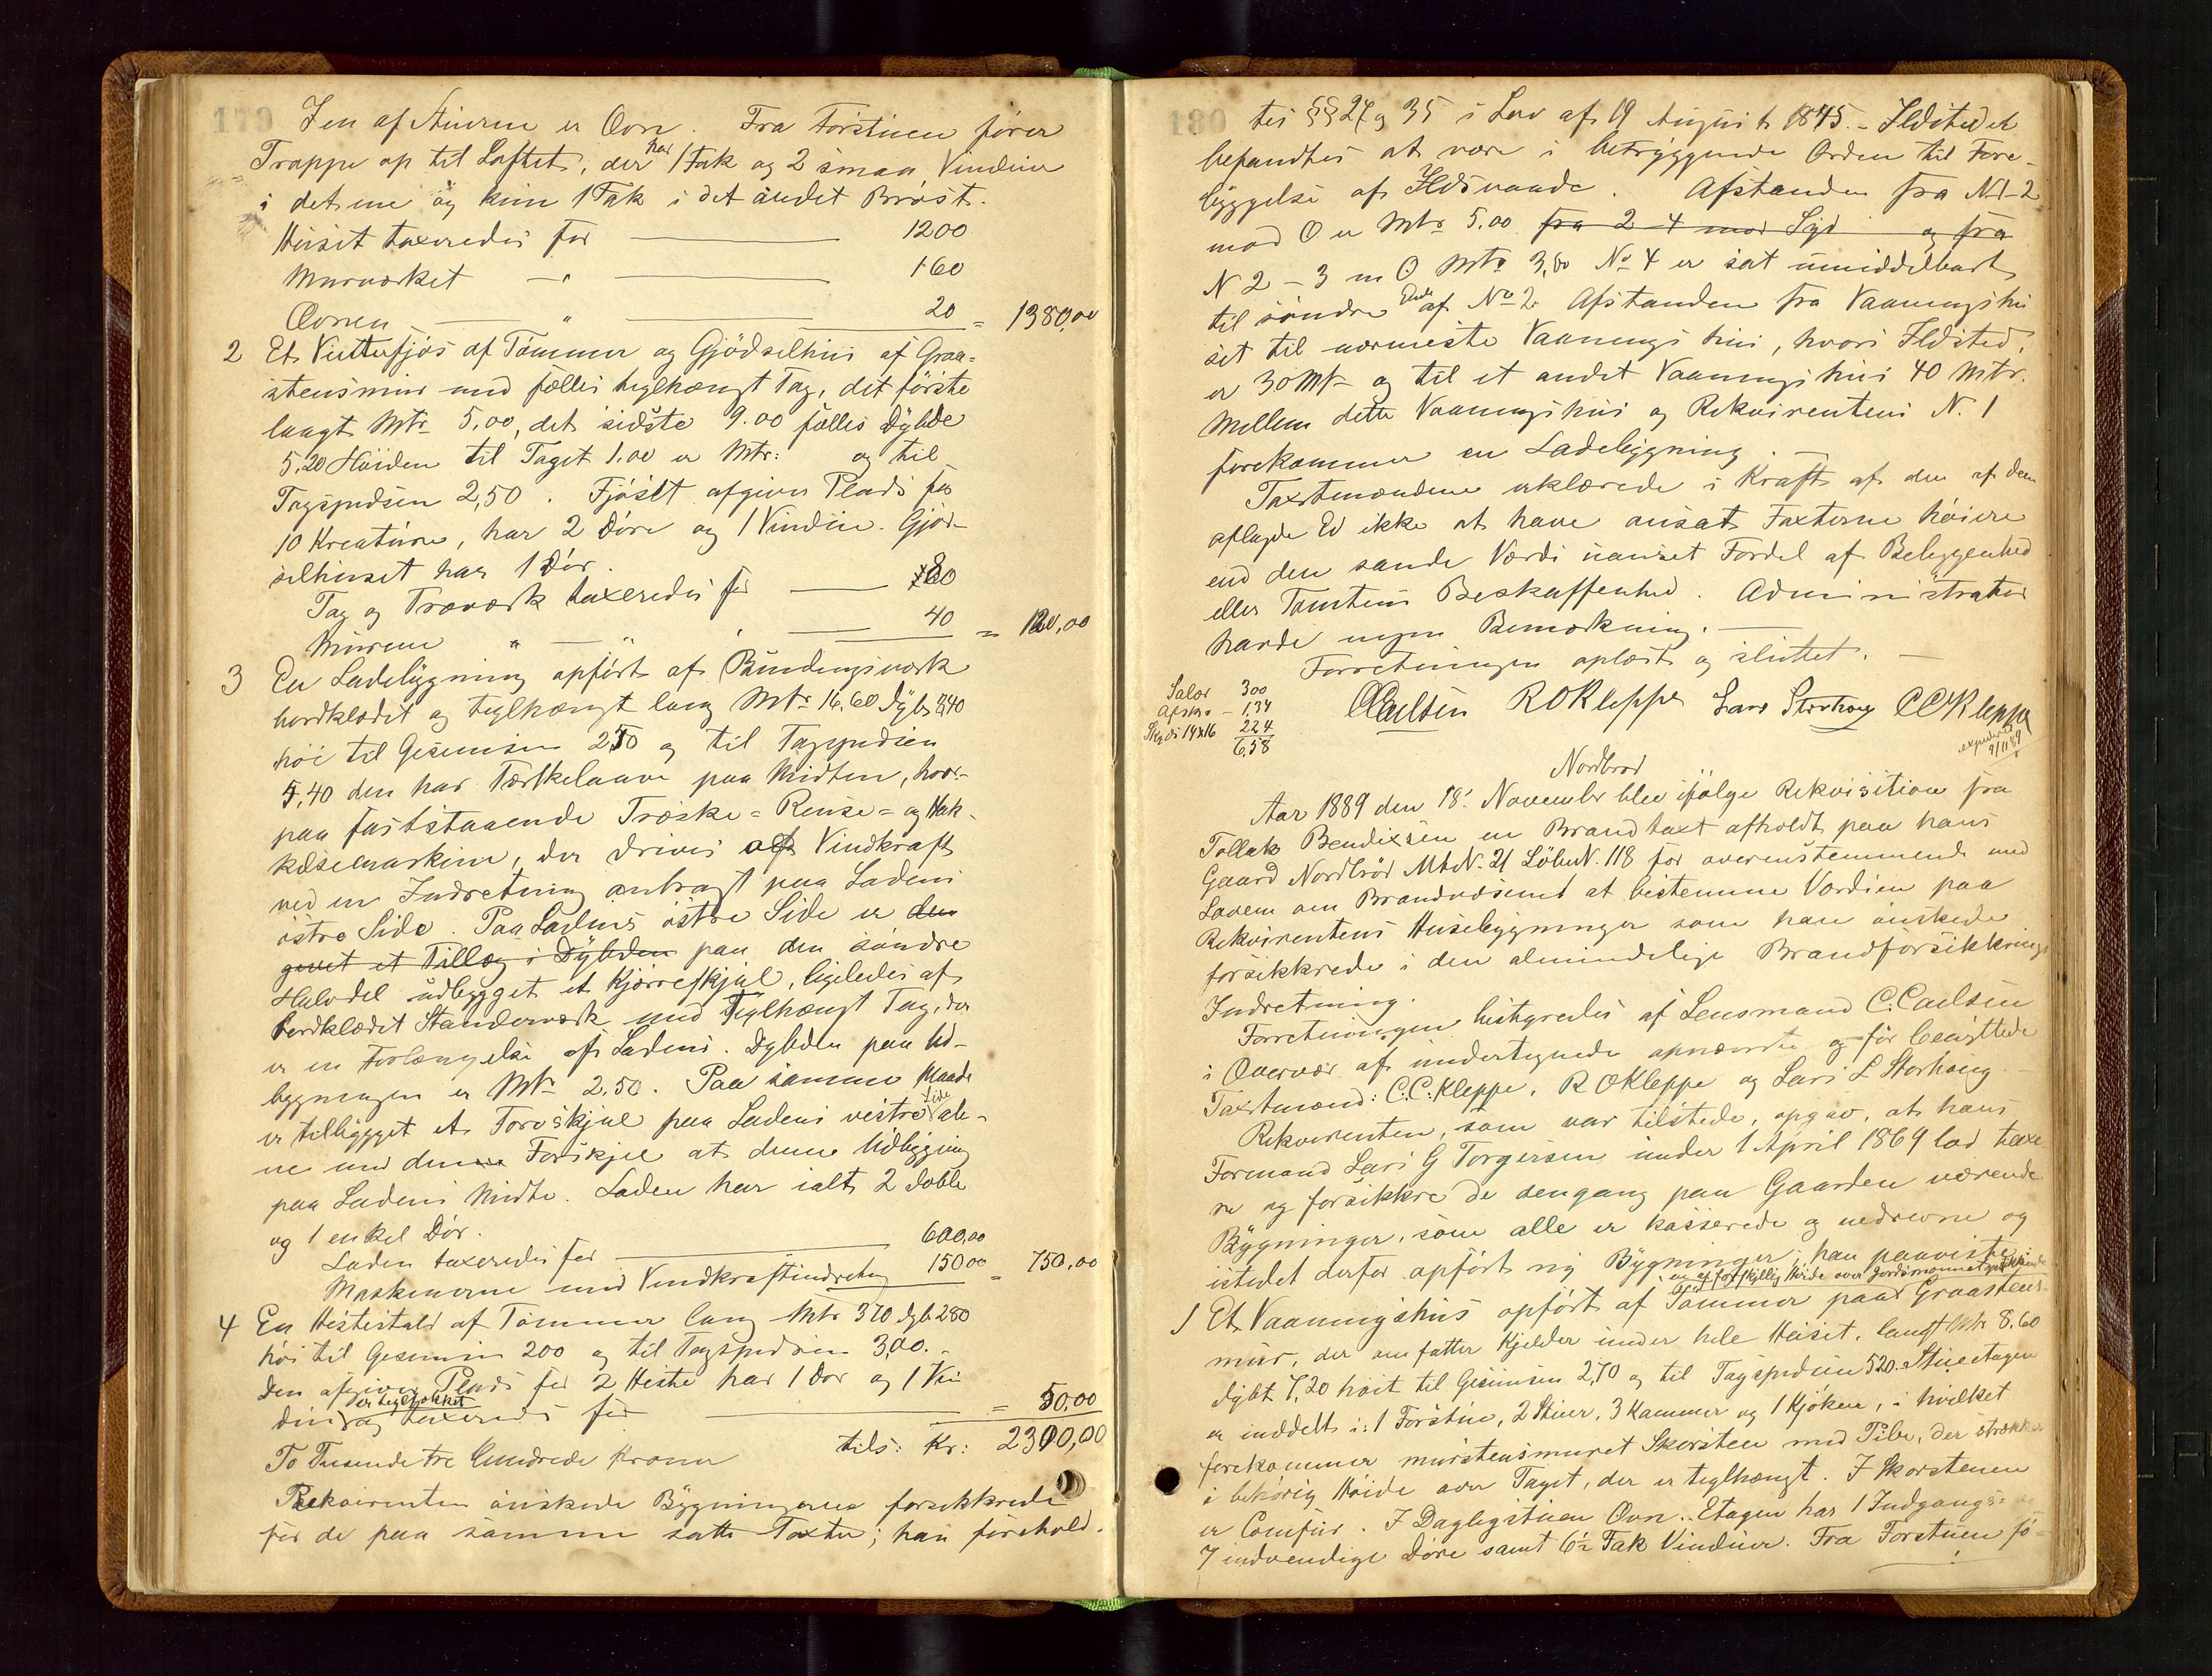 179
I en af Stuerne er Ovn. Fra Forstuen fører
Trappe op til Loftet, der har 1 Fak og 2 smaa Vinduer
i det ene og kun 1 Fak i det andet Bröst.
Huset taxeredes for — 1200
Murværket — " — 160
Ovnen — " — 20 = 1380,00
2 Et Vinterfjös af Tömmer og Gjödselhus af Graa-
stensmur med fælles teglhængt Tag, det förste
langt Mtr 5,00, det sidste 9.00 fælles Dybde
5,20 Höiden til Taget 1.00 er Mtr: og til
Tagspidsen 2,50. Fjöset afgiver Plads for
10 Kreaturer, har 2 Döre og 1 Vindue. Gjöd-
selhuset har 1 Dör.
Tag og Træværk taxeredes for — 80
Murene " — " — 40 = 120,00
3 En Ladebygning opfört af Bindingsværk
bordklædt og teglhængt lang Mtr 16.60 Dybd 8,40
höi til Gesimsen 2,50 og til Tagspidsen
5,40 den har Tærskelaave paa Midten, hvor-
paa fastståaende Træske= Rense= og Hak-
kelsemaskine, der drives af Vindkraft
ved en Indretning anbragt paa Ladens
östre Side. Paa Ladens östre Side er den
givet et Tillæg i Dybden paa den söndre
Halvdel udbygget et Kjörreskjul, ligeledes af
bordklædt Standerværk med Teglhængt Tag, der
er en Forlængelse af Ladens. Dybden paa Ud-
bygningen er Mtr 2.50. Paa samme Maade
er tilbygget et Torvskjul paa Ladens vestre Side ale-
ne med denne Forskjel at denne Udbygning
paa Ladens Midte. Laden har ialt 2 doble
og 1 enkel Dör.
Laden taxeredes for — 600,00
Maskinerne med Vindkraftindretng 150 00 = 750,00
4 En Hestestald af Tömmer lang Mtr 370 dyb 280
höi til Gesimsen 200 og til Tagspidsen 3,00.
Den afgiver Plads for 2 Heste har 1 Dör og 1 Vin
er teglhækket
due og taxeredes for — = 50,00
To Tusende tre hundrede Kroner tils: Kr: 2300,00
Rekvirenten önskede Bygningerne forsikkrede
for de paa samme satte Taxter; han forehold-
180
tes §§ 24 og 35 i Lov af 19 August 1845. - Ildstedet
befandtes at være i betryggende Orden til Fore-
byggelse af Ildsvaade. Afstanden fra N 1-2
mod O er Mtr 5.00 fra 2-4 mod Syd og fra
N 2 - 3 m O Mtr 3,80 No 4 er sat umiddelbart
til söndre Ende af No 2. Afstanden fra Vaaningshu
set til nærmeste Vaaningshus, hvori Ildsted,
er 30 Mtr og til et andet Vaaningshus 40 Mtr.
Mellem dette Vaaningshus og Rekvirentens N. 1
forekommer en Ladebygning.
Taxtmændene erklærede i Kraft af den af dem
aflagde Ed ikke at have ansat Taxterne höiere
end den sande Værdi uanset Fordel af Beliggenhed
eller Tomtens Beskaffenhed. Administrator
havde ingen Bemærkning. —
Forretningen oplæst og sluttet. —
Salær 300
Afskr. — 1,34
Skyds 14x16 224
6,58
CCarlsen ROKleppe Lars Storhoug CCKleppe
expederet
9/11 89
Nordbrod
Aar 1889 den 18' November blev ifölge Rekvisition fra
Tollak Bendixsen en Brandtaxt afholdt paa hans
Gaard Nordbröd Mt.N. 21 LöbeN. 118 for overenstemmende med
Loven om Brandvæsenet at bestemme Værdien paa
Rekvirentens Husebygninger som han önskede
forsikkrede i den almindelige Brandforsikkrings
Indretning.
Forretningen bestyredes af Lensmand C. Carlsen
i Overvær af undertegnede opnævnte og för benyttede
Taxtmænd: C.C. Kleppe, R O Kleppe og Lars L Storhoug.
Rekvirenten, som var tilstede, opgav, at hans
Formand Lars G Torgersen under 1 April 1869 lod taxe
re og forsikkre de dengang paa Gaarden værende
Bygninger, som alle er kasserede og nedrevne og
istedet derfor opfört ny Bygninger; han paaviste:
en af forskjellig Höide over Jordsmonnet
1 Et Vaaningshus opfört af Tömmer paa Graastens-
mur, der omfatter Kjelder under hele Huset, langt Mtr 8.60
dybt 7,20 höit til Gesimsen 2,70 og til Tagspidsen 520. Stueetagen
er inddelt i: 1 Forstue, 2 Stuer, 3 Kammer og 1 Kjöken, i hvilket
forekommer murstensmuret Skorsten med Pibe, der strækker
i behörig Höide over Taget, der er teglhængt. I Skorstenen
er Comfur. I Dagligstuen Ovn. Etagen har 1 Indgangs= og
7 indvendige Döre samt 6½ Fak Vinduer. Fra Forstuen fö-